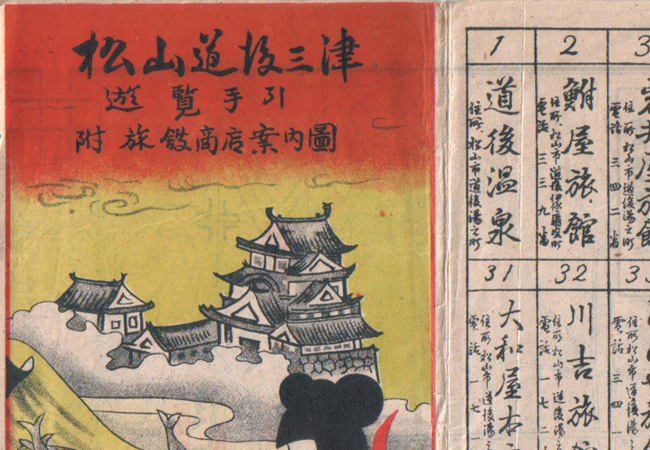 松山道後三津
遊覧手引
附旅舘商店案内圖
1
道後温泉
住所、松山市道後湯之町
2
鮒屋旅館
住所、松山市道後伊佐爾波町
電話 三三九番
3
住所、松山市道後湯之町
電話 三四二番
31
大和屋本
住所、松山市道後湯之
電話 一七
32
川吉旅
住所、松山市道後湯之
電話 一七二
3
住所、松山市道後湯
電話 三四